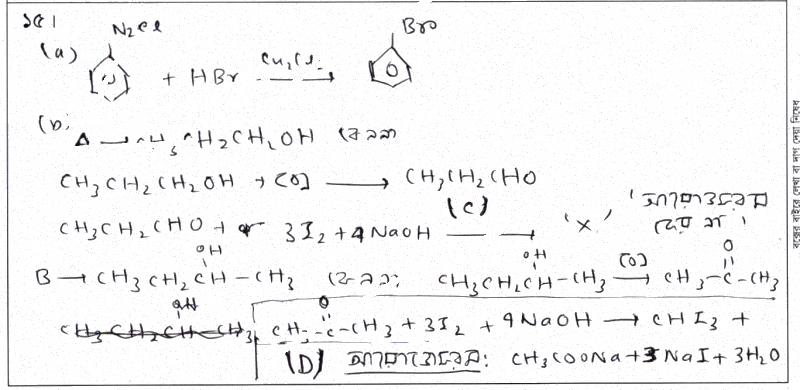 ১৫।
N₂Cl Br
(a) + HBr Cu₂Cl₂ →
(b) A → CH₃CH₂CH₂OH কেননা
CH₃CH₂CH₂OH + [O] → CH₃CH₂CHO
(C) আয়োডোফরম
CH₃CH₂CHO + 3I₂ + 4NaOH → 'X' দেয় না।
OH OH O
B → CH₃CH₂CH-CH₃ কেননা: CH₃CH₂CH-CH₃ [O] → CH₃-C-CH₃
OH O
CH₃CH₂CH-CH₃ CH₃-C-CH₃ + 3I₂ + 4NaOH → CHI₃ +
(D) আয়োডোফরম: CH₃COONa + 3NaI + 3H₂O
বক্সের বাইরে লেখা বা দাগ দেয়া নিষেধ